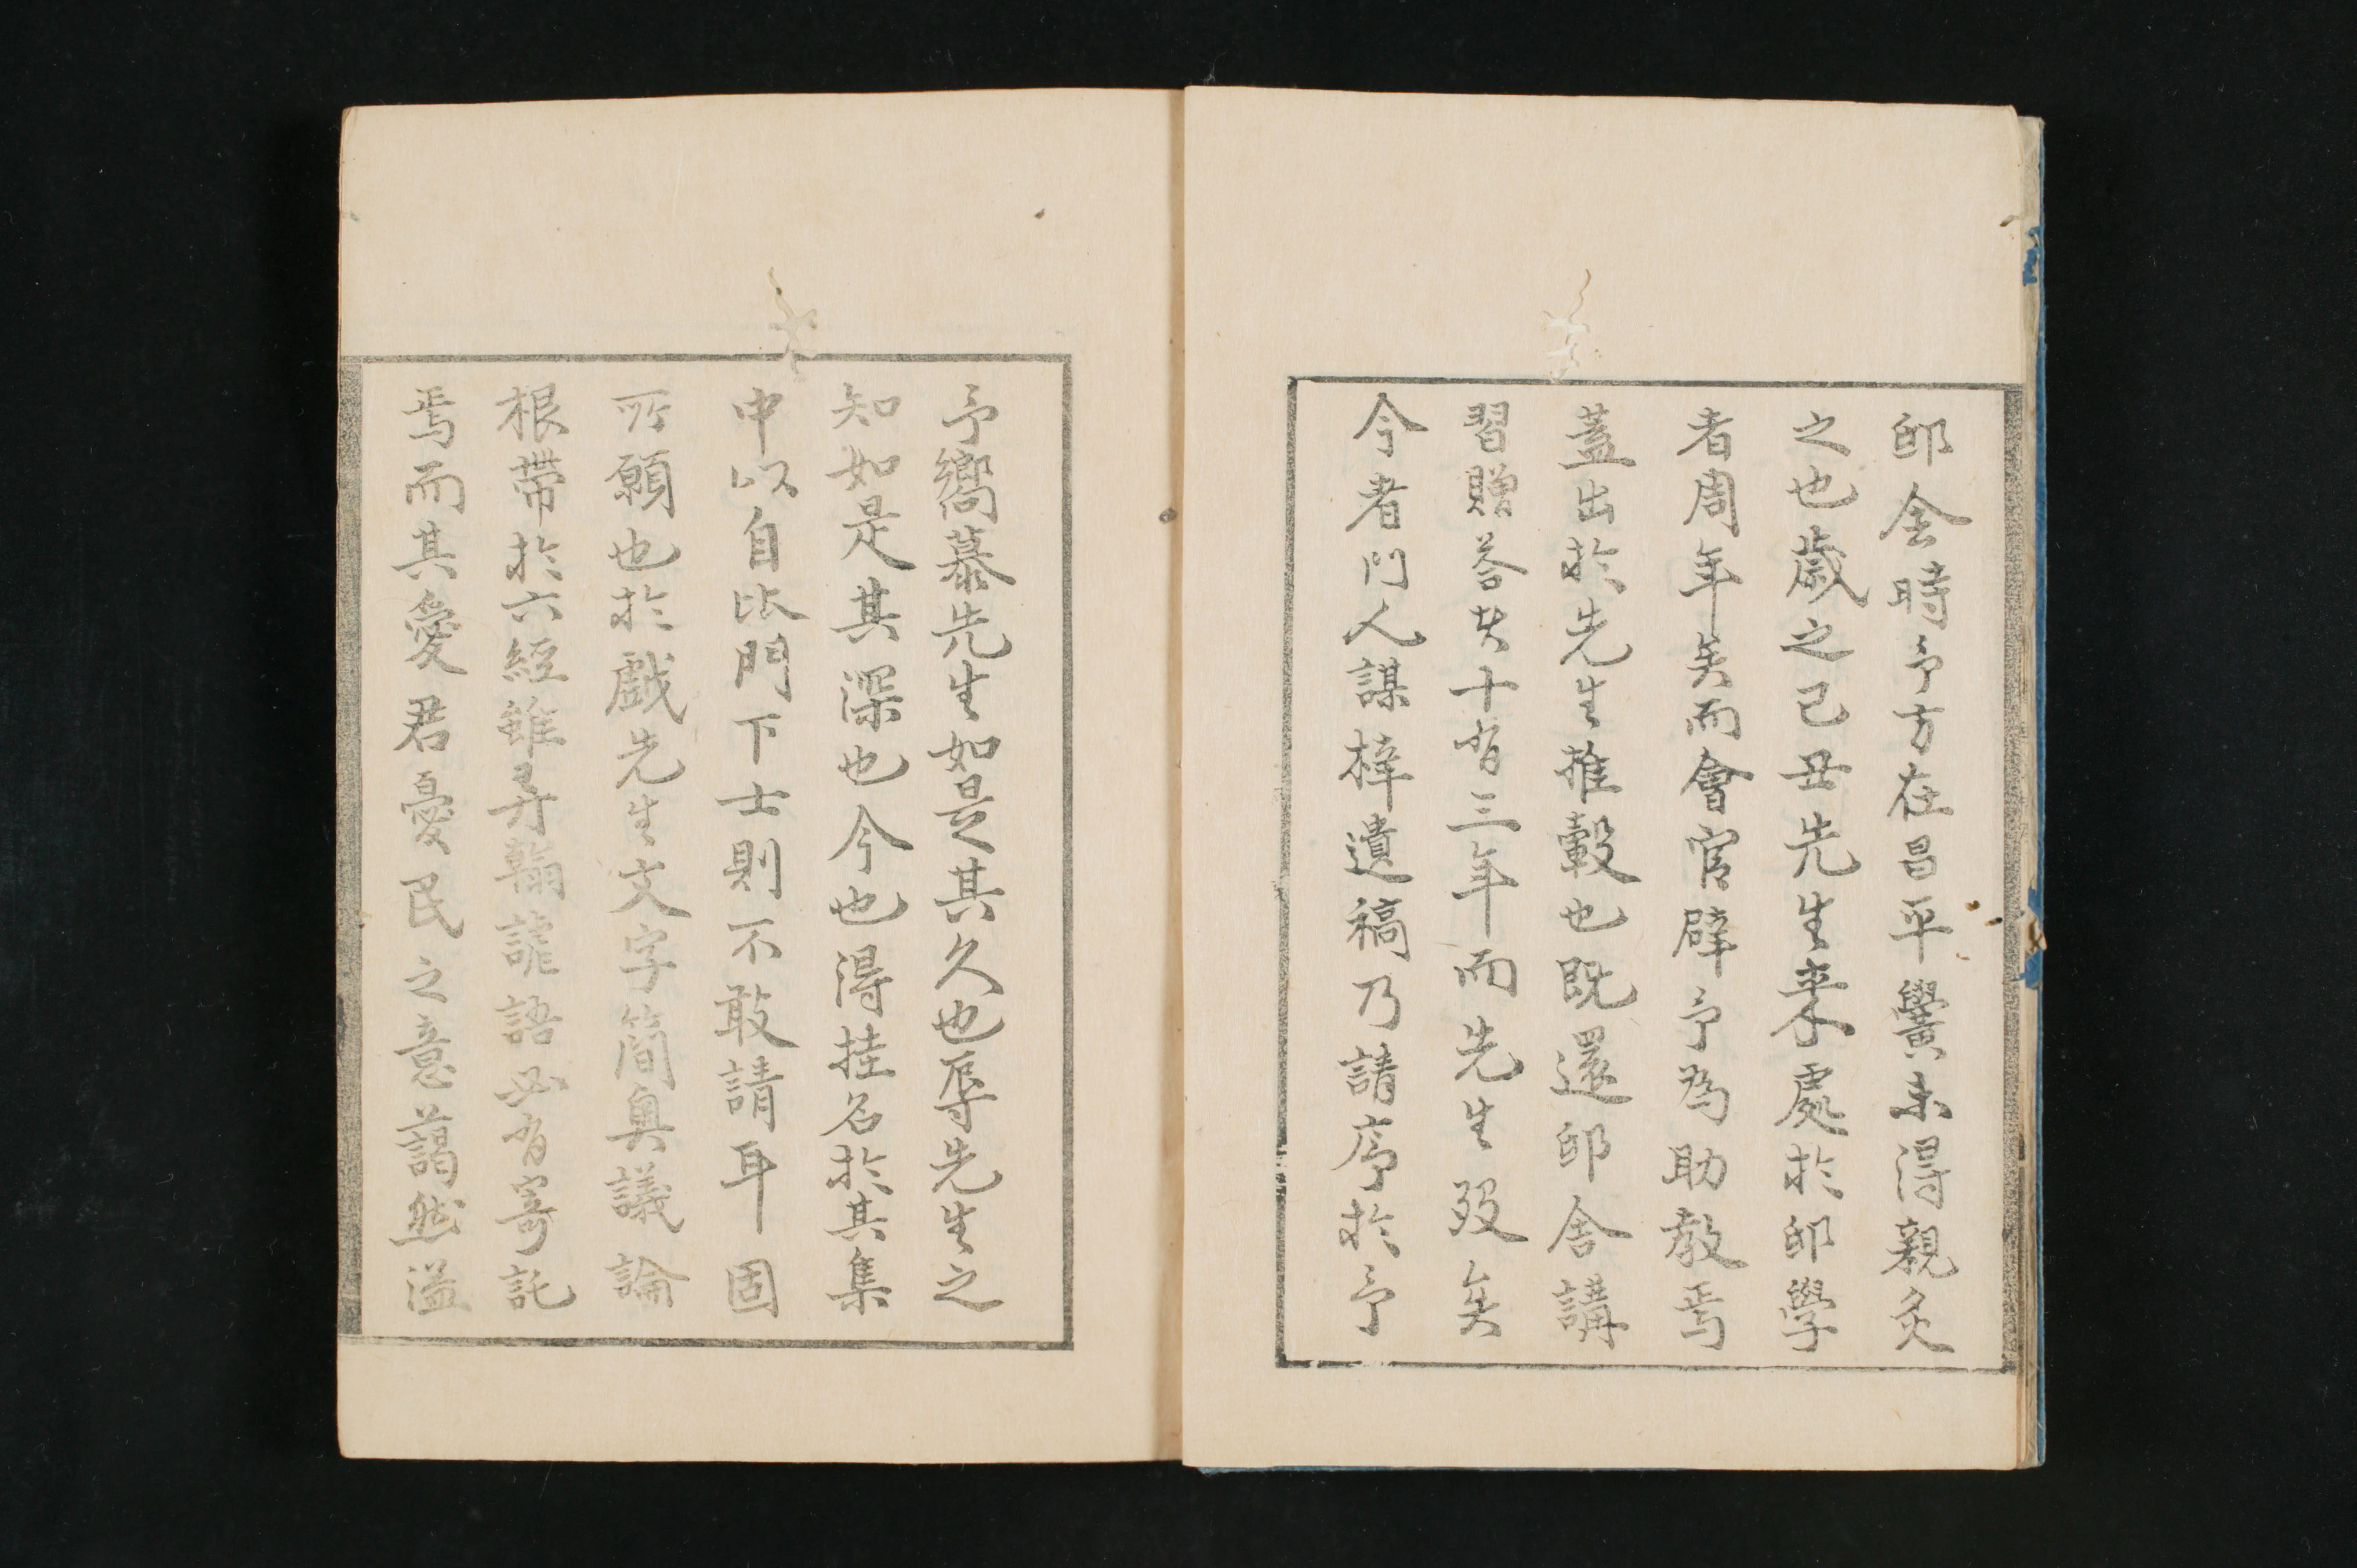 邸舍時予方在昌平黌未得親炙
之也歲之己丑先生来處於邸學
者周年矣而會官辟予為助教焉
蓋出於先生推轂也既還邸舍講
習贈荅共十有三年而先生歿矣
今者門人謀梓遺稿乃請序於予
予嚮慕先生如是其久也辱先生之
知如是其深也今也得挂名於其集
中以自比門下士則不敢請耳固
所願也於戲先生文字簡奧議論
根帶於六經雖弄翰謔語必有寄託
焉而其愛君憂民之意藹然溢